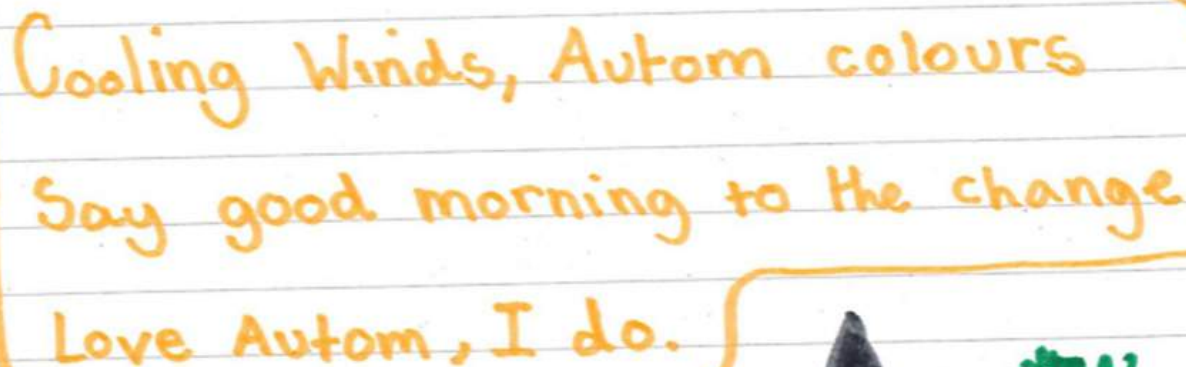 Cooling Winds, Autom colours
Say good morning to the change
Love Autom, I do.